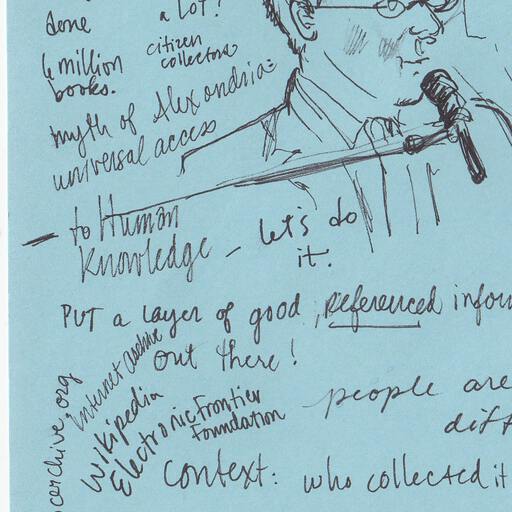 done
a lot!
6 million
books.
citizen
collectors
myth of Alexandria:
universal access
to Human
Knowledge - let's do
it.
PUT a layer of good, referenced infor
out there!
Internet archive
Wikipedia
Electronic Frontier
Foundation
people are
diff
context: who collected it